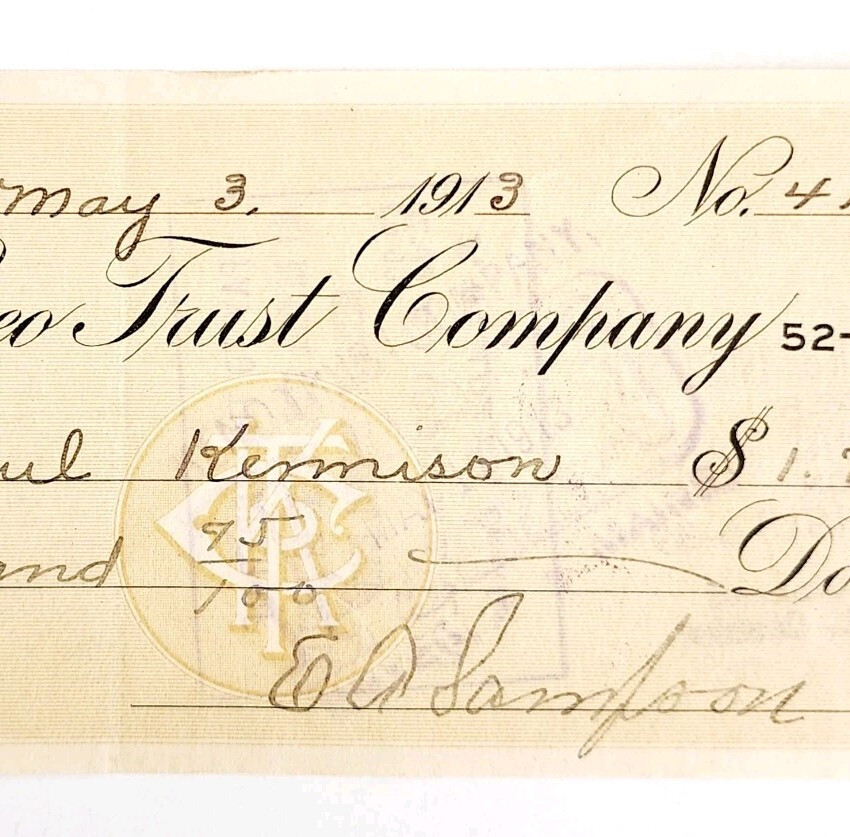 May 3. 1913 No. 4
eo Trust Company 52-
ul Kennison $ 1.
and 95/100 Do
E A Sampson